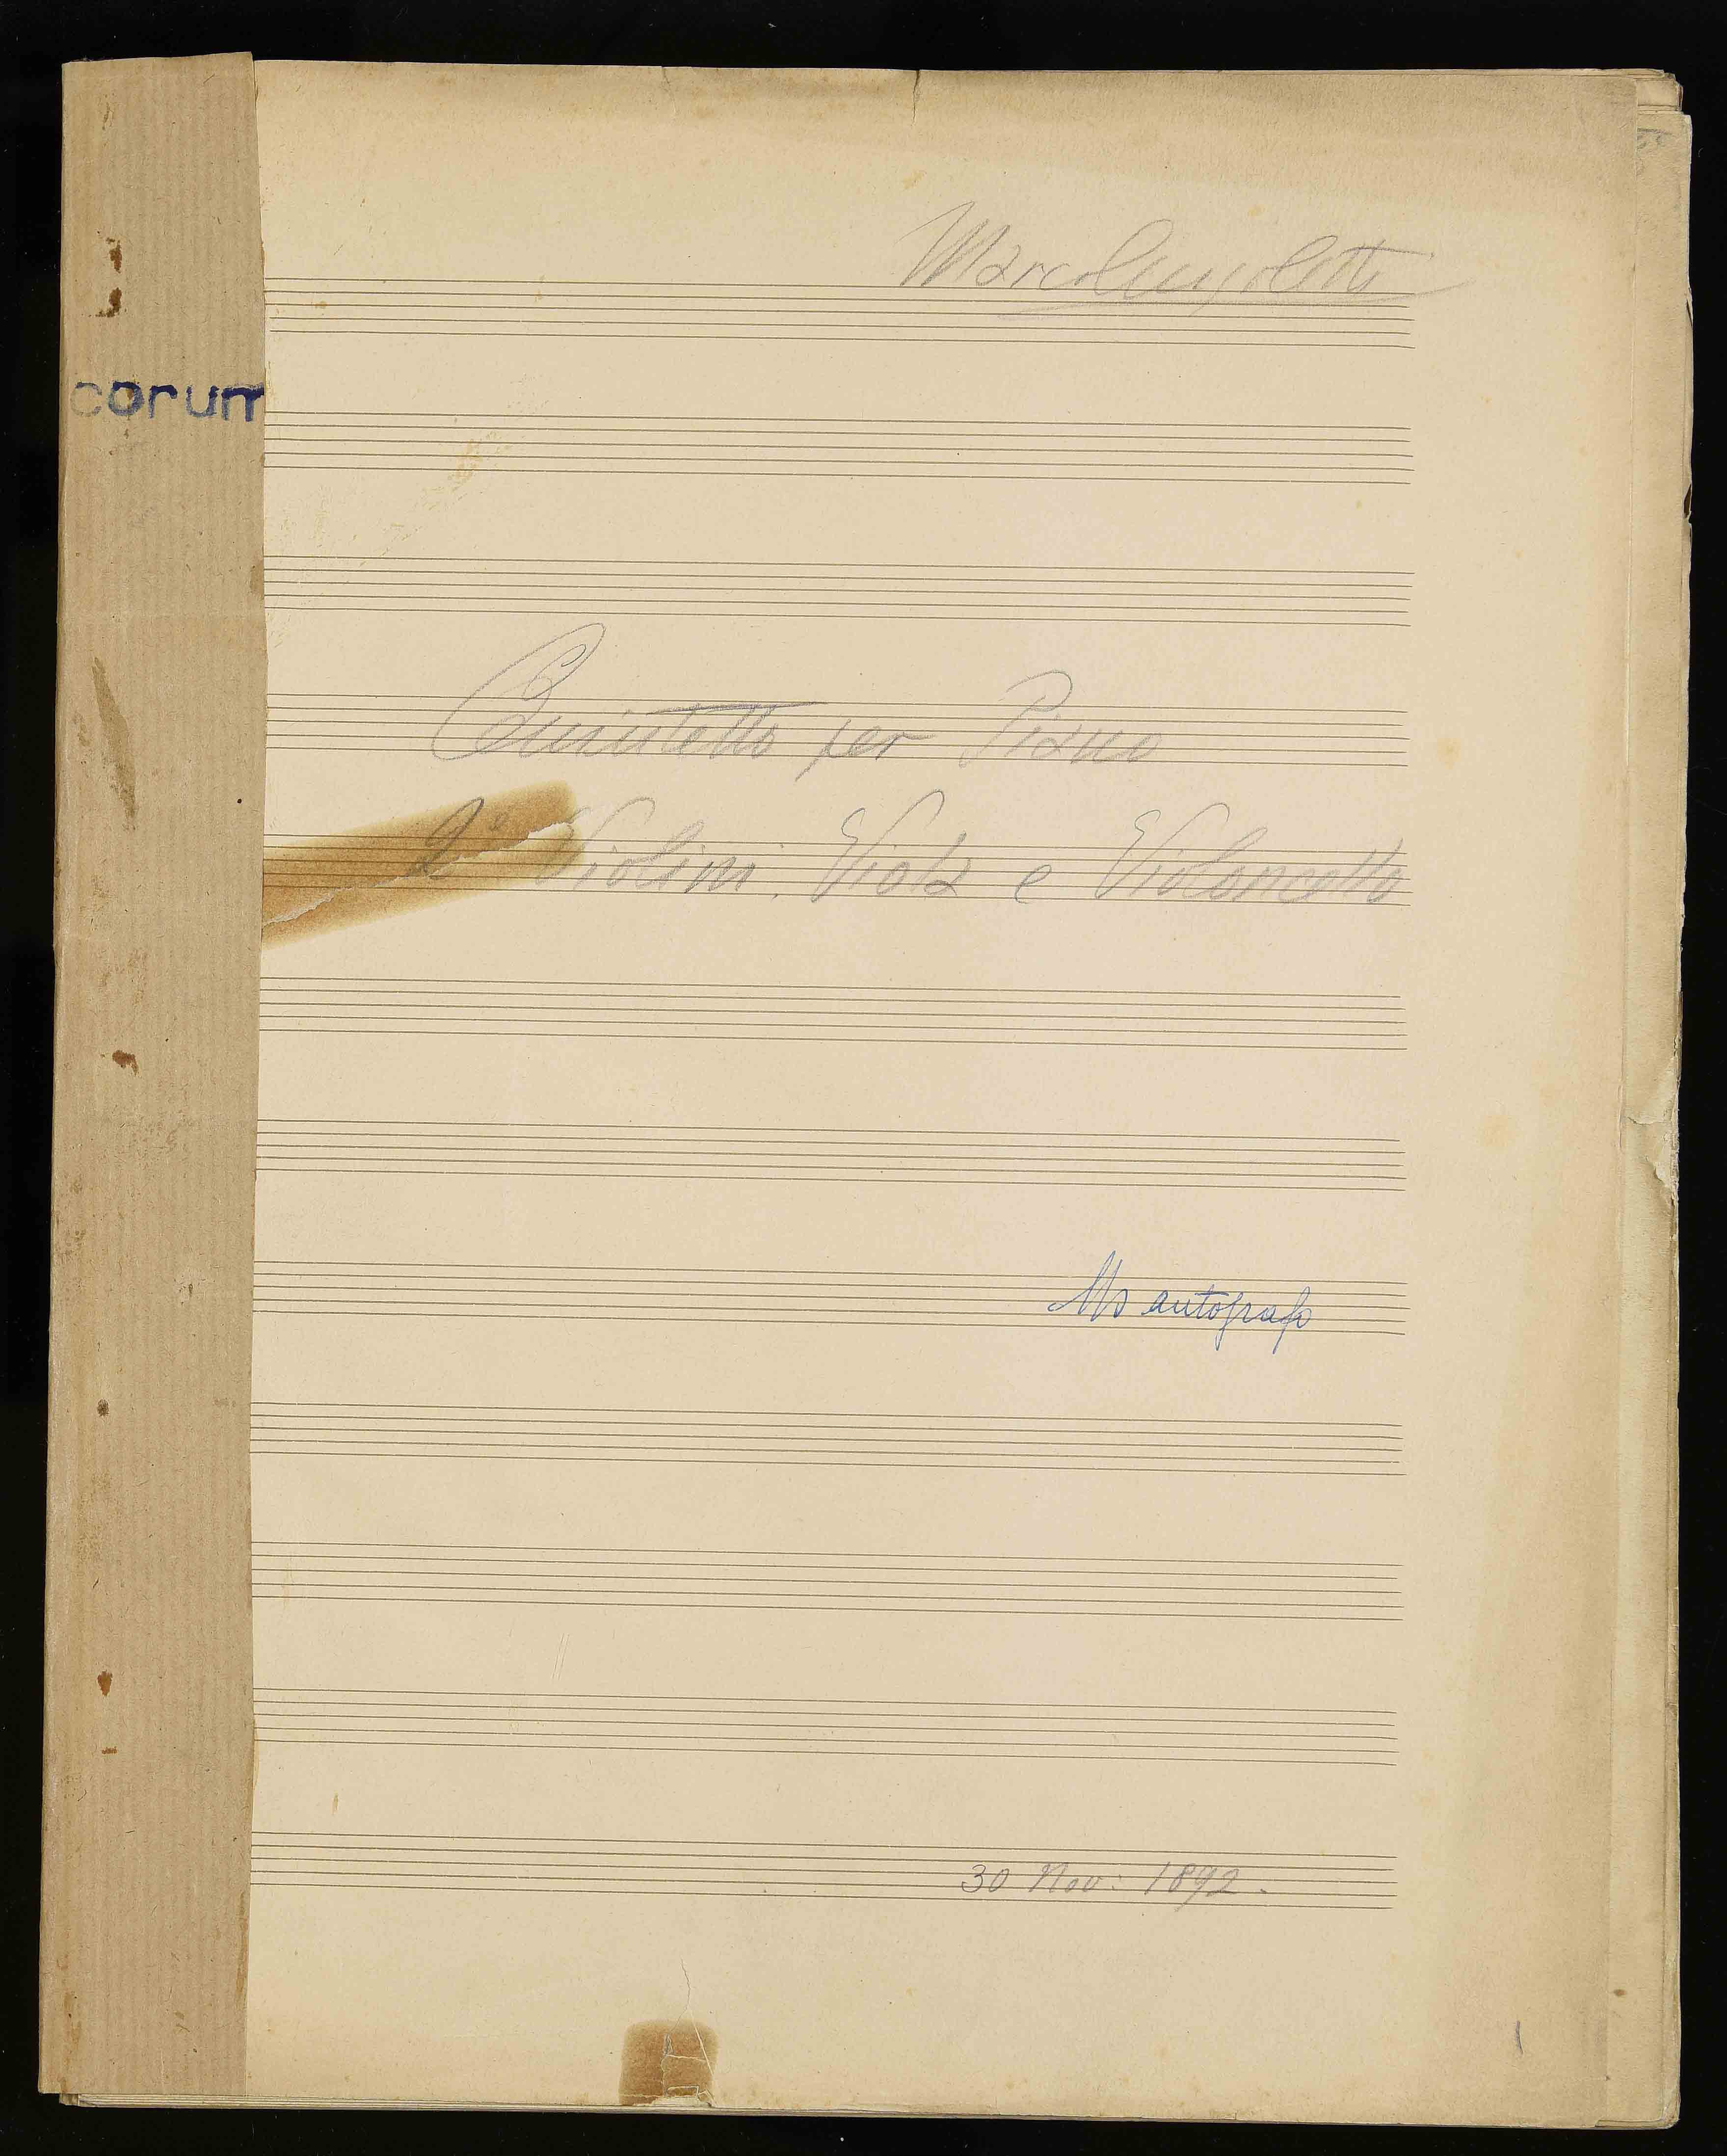 Marco Anzoletti
corum
Quintetto per Piano
2e Violini. Viola e Violoncello
Ms autografo
30 Nov: 1892.
1